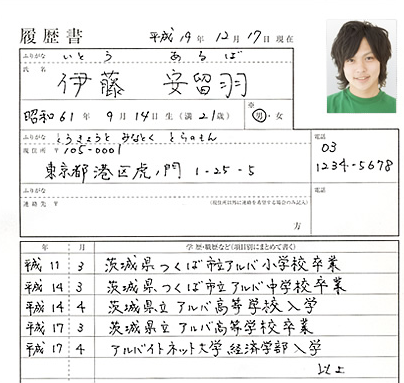 履歴書 平成 19年 12月 17日現在
ふりがな いとう あるば
氏名 伊藤 安留羽
昭和 61年 9月 14日生 (満 21歳) ※ 男・女
ふりがな とうきょうと みなとく とらのもん
現住所 〒105-0001
東京都港区虎ノ門 1-25-5
電話
03
1234-5678
ふりがな
連絡先 〒 (現住所以外に連絡を希望する場合のみ記入)
方
電話
年 月 学歴・職歴など(項目別にまとめて書く)
平成11 3 茨城県つくば市立アルバ小学校卒業
平成14 3 茨城県つくば市立アルバ中学校卒業
平成14 4 茨城県立アルバ高等学校入学
平成17 3 茨城県立アルバ高等学校卒業
平成17 4 アルバイトネット大学経済学部入学
以上